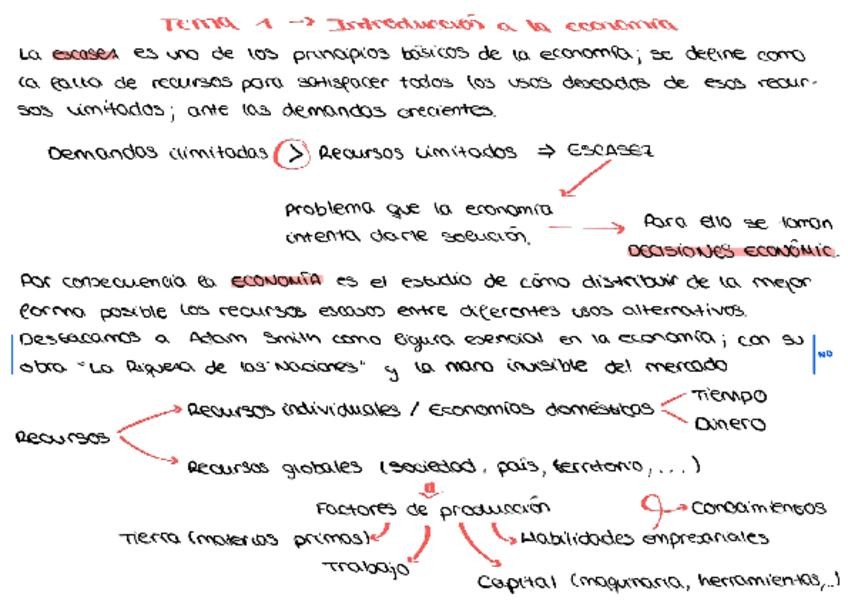 Tema 1 → Introducción a la economía
La escasez es uno de los principios básicos de la economía; se define como
la falta de recursos para satisfacer todos los usos deseados de esos recur-
sos limitados; ante las demandas crecientes.
Demandas ilimitadas > Recursos Limitados ⇒ ESCASEZ
Problema que la economía
intenta darle solución.
→ Para ello se toman
DECISIONES ECONÓMIC.
Por consecuencia la ECONOMÍA es el estudio de cómo distribuir de la mejor
forma posible los recursos escasos entre diferentes usos alternativos.
Destacamos a Adam Smith como figura esencial en la economía; con su
obra "La Riqueza de las Naciones" y la mano invisible del mercado
NO
Recursos
Recursos individuales / Economías domésticas
Tiempo
Dinero
Recursos globales (sociedad, país, territorio, ...)
Factores de producción
Conocimientos
Tierra (materias primas)
Habilidades empresariales
Trabajo
Capital (maquinaria, herramientas,..)